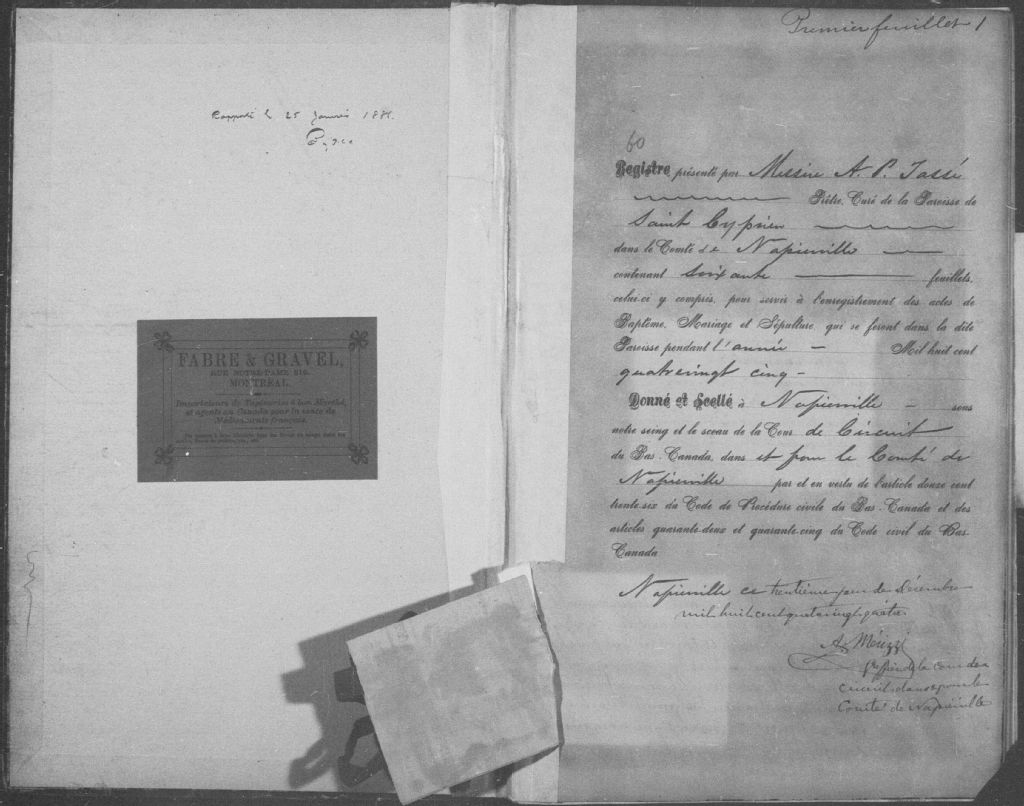 Rapporté le 25 janvier 188
FABRE & GRAVEL,
RUE NOTRE-DAME 219.
MONTREAL.
Importateurs de
et agents au Canada pour la vente de
Médicaments français.
Premier feuillet 1
60
Registre présenté par Messire A. P. Tassé
Prêtre, Curé de la Paroisse de
Saint Cyprien
dans le Comté de Napierville
contenant soixante feuillets,
celui-ci y compris, pour servir à l'enregistrement des actes de
Baptême, Mariage et Sépulture, qui se feront dans la dite
Paroisse pendant l'année – Mil huit cent
quatrevingt cinq –
Donné et Scellé à Napierville – sous
notre seing et le sceau de la Cour de Circuit
du Bas-Canada, dans et pour le Comté de
Napierville par et en vertu de l'article douze cent
trente-six du Code de Procédure civile du Bas-Canada et des
articles quarante-deux et quarante-cinq du Code civil du Bas-
Canada
Napierville ce trentième jour de Décembre
mil huit cent quatrevingt quatre
Cour de
circuit dans & pour le
Comté de Napierville